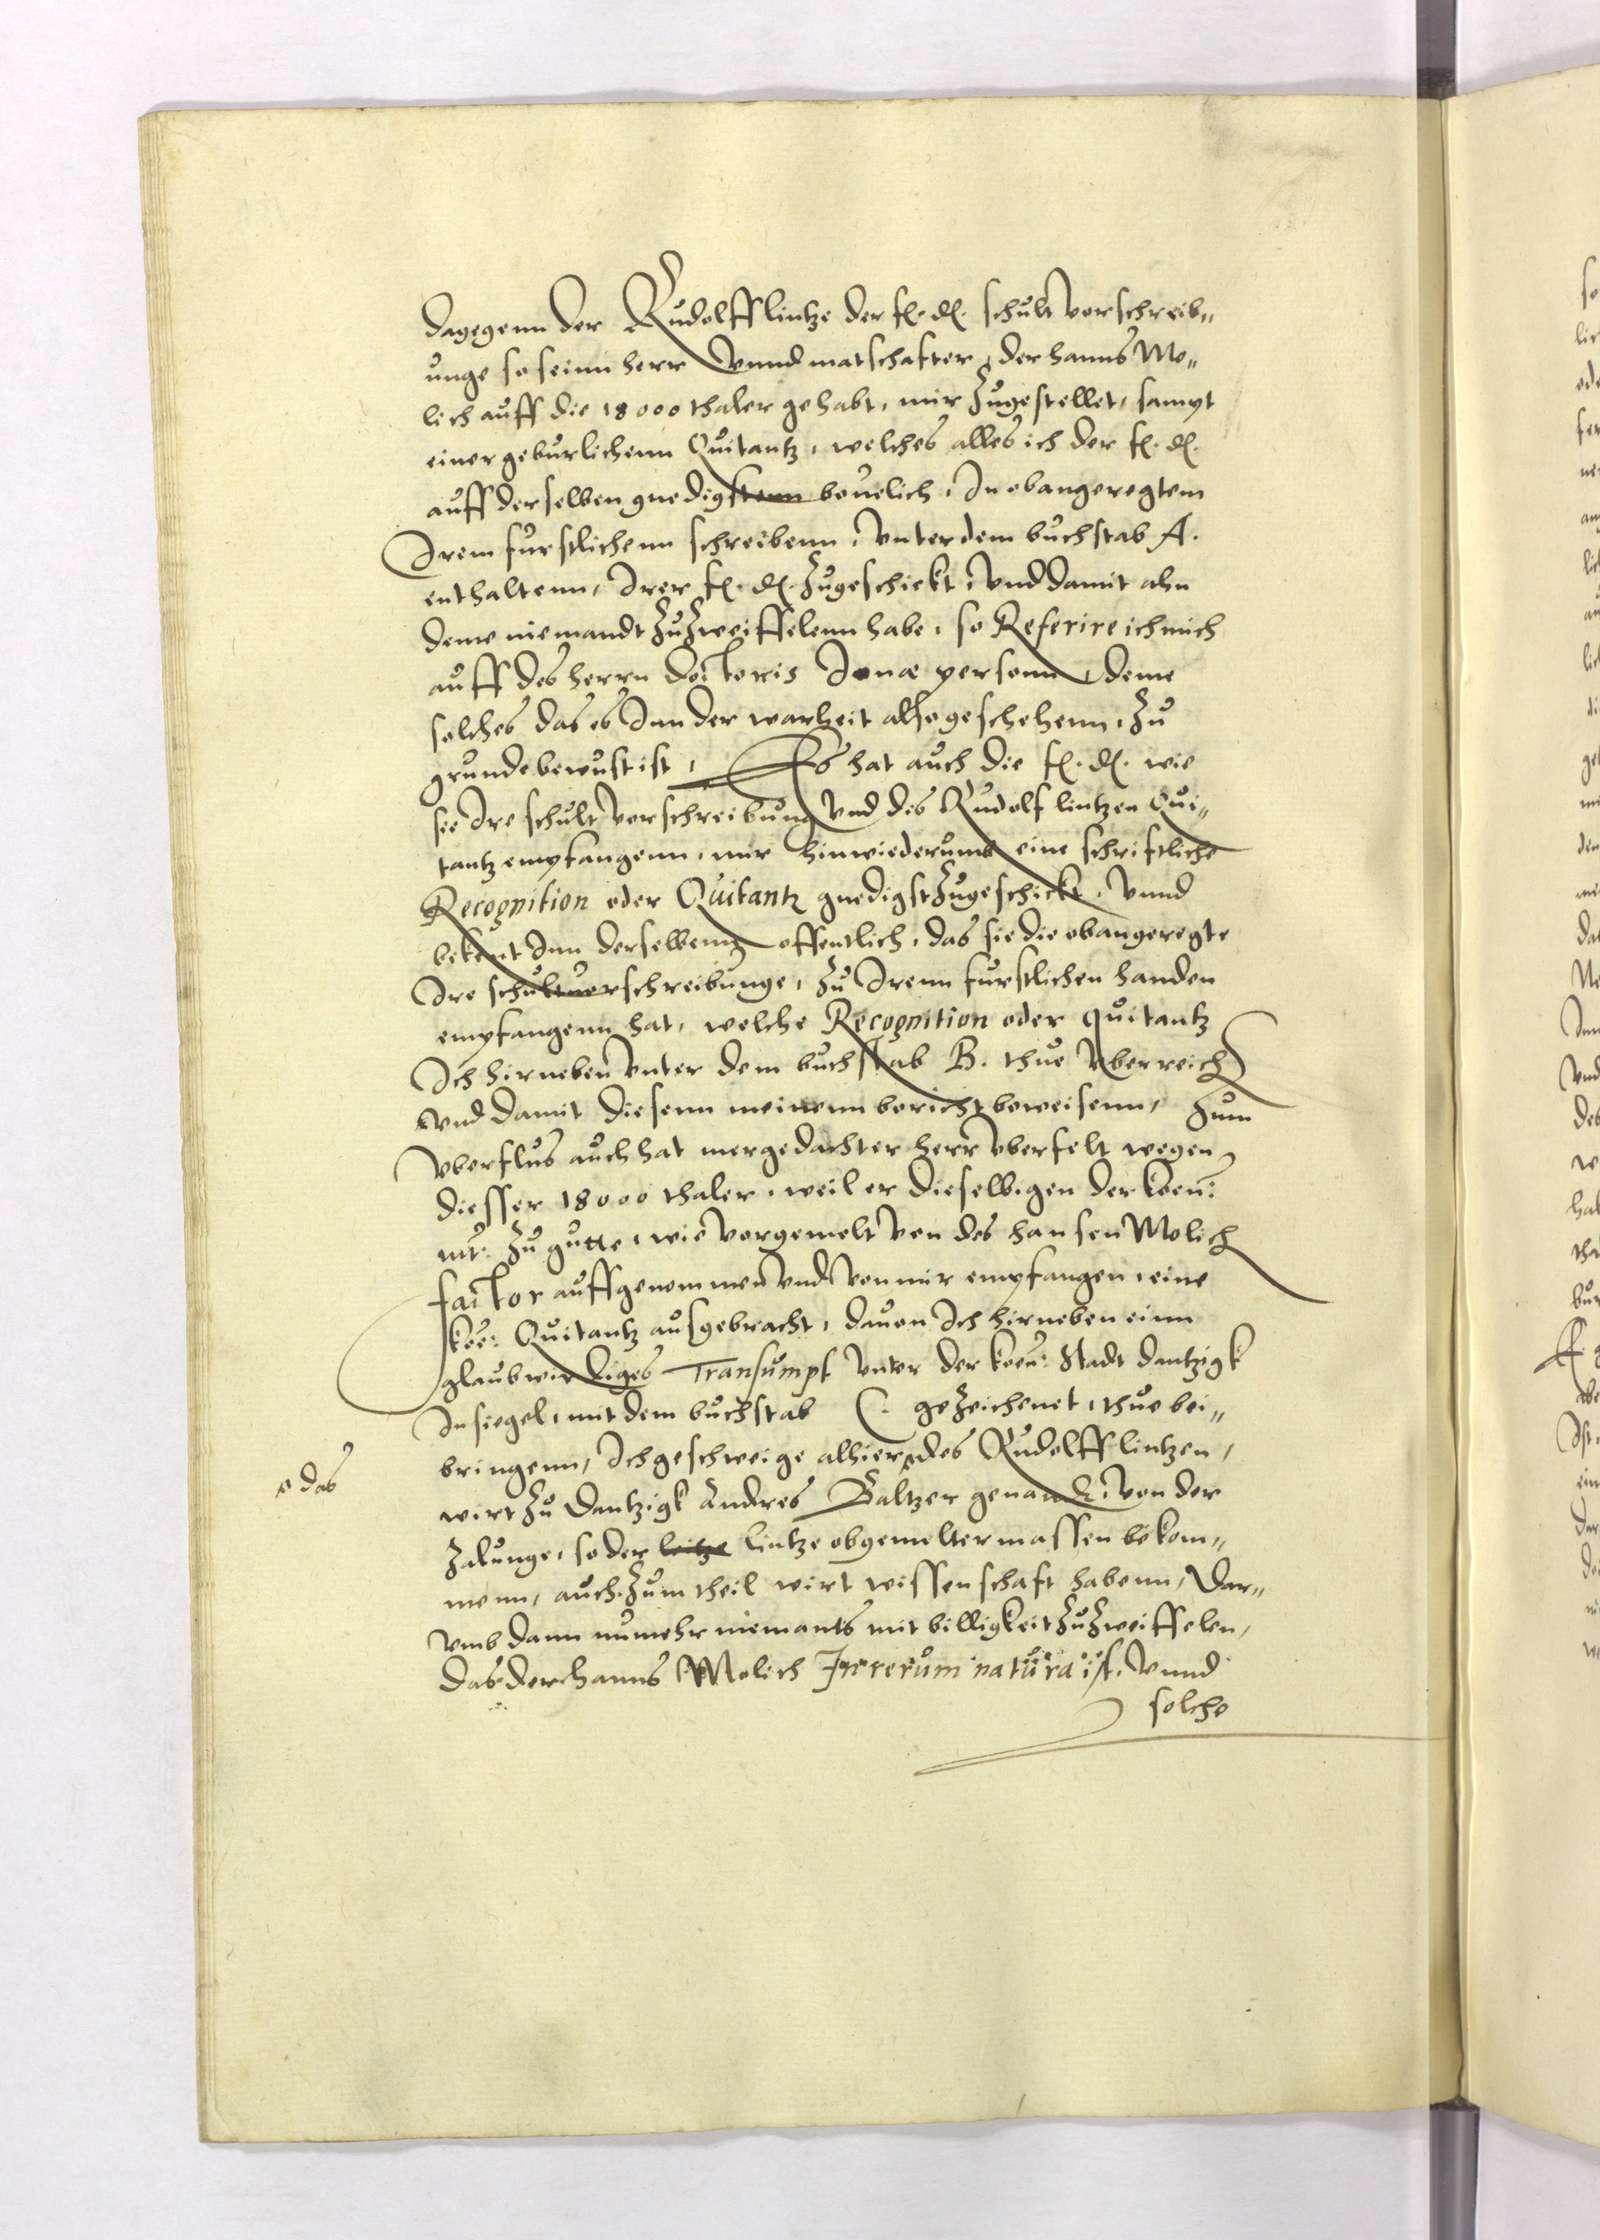 dagegenn der Rudolff lintze der f. d. schult vorschreib„
unge so seinn herr vnnd matschafter, der hanns Mo„
lich auff die 18000 thaler gehabt, mir zugestellet, sampt
einer geburlichenn Quitantz, welches alles ich der f. d.
auff derselben gnedigstenn beuelich, In obangeregtem
Irem furstlichenn schreibenn, vnter dem buchstab A.
enthaltenn, Irer f. d. zugeschickt, vnd damit ahn
deme niemandt zu zweiffelenn habe, so Referire ich mich
auff des herrn doctoris Jonæ personn, deme
solches das es Inn der warheit also geschehenn, zu
grunde bewust ist, Es hat auch die f. d. wie
sie Ire schult vorschreibung vnd des Rudolf lintzen Qui„
tantz empfangenn, mir hinwiederumb eine schriftliche
Recognition oder Quitantz gnedigst zugeschickt, vnnd
bekent Inn derselbenn offentlich, das sie die obangeregte
Ire schultuerschreibunge, zu Irenn furstlichen handen
empfangenn hat, welche Recognition oder quitantz
Ich hirneben vnter dem buchstab B. thue vberreich
vnd damit diesenn meinenn bericht beweisenn, zum
vberflus auch hat mergedachter herr vberfelt wegen
diesser 18000 thaler, weil er dieselbigen der koen:
mt: zu gutte, wie vorgemelt von des hansen Molich
factor auffgenommen vnd von mir empfangen, eine
koe: Quitantz ausgebracht, dauon Ich hirneben einn
glaubwirdiges Transumpt vnter der koen: Stadt dantzigk
Insiegel, mit dem buchstab C. gezeichenet, thue bei„
bringenn, Ich geschweige alhier, des Rudolff lintzen,
das
wirt zu dantzigk Andres Baltzer genandt, von der
zalunge, so der leitze lintze obgemeltermassen bekom„
menn, auch zum theil wirt wissenschaft habenn, Dar„
vmb dann numehr niemants mit billigkeit zu zweiffelen,
das der hanns Molich In rerum natura ist, vnnd
solche